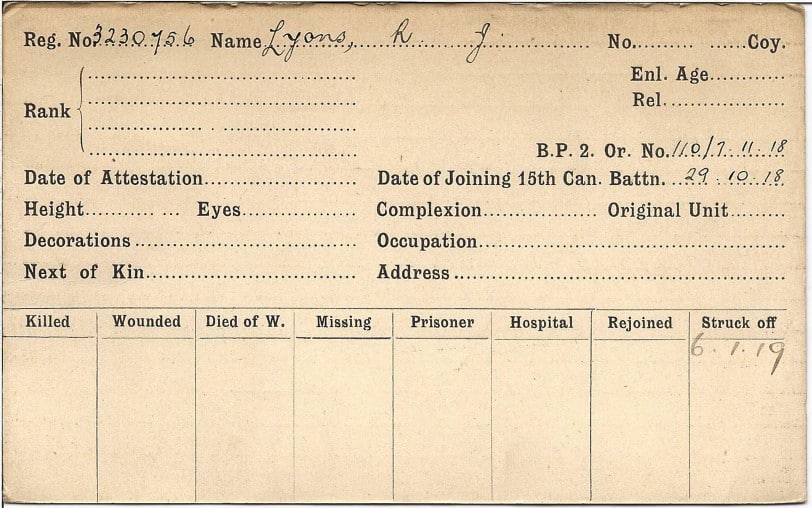 Reg. No 3230756 Name Lyons, R J. No. Coy.
Enl. Age
Rel.
Rank
B.P. 2. Or. No. 110/7.11.18
Date of Attestation Date of Joining 15th Can. Battn. 29.10.18
Height Eyes Complexion Original Unit
Decorations Occupation
Next of Kin Address
Killed Wounded Died of W. Missing Prisoner Hospital Rejoined Struck off
6.1.19